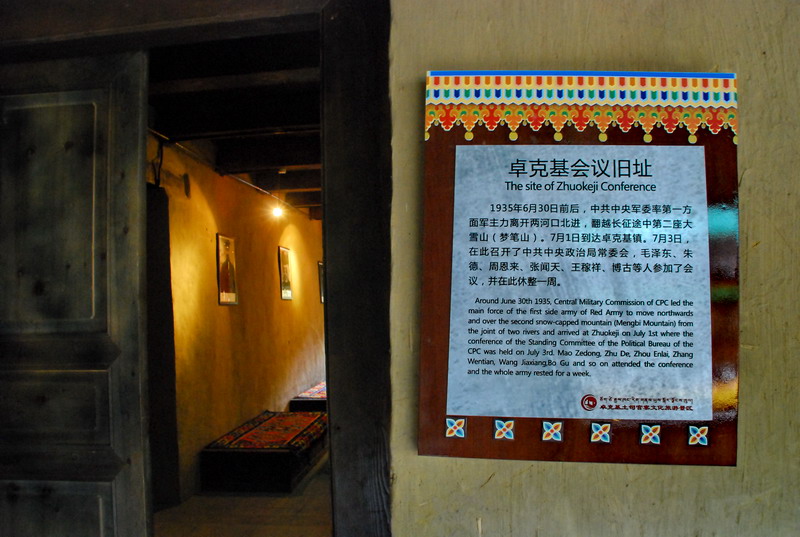 卓克基会议旧址
The site of Zhuokeji Conference
1935年6月30日前后，中共中央军委率第一方
面军主力离开两河口北进，翻越长征途中第二座大
雪山（梦笔山）。7月1日到达卓克基镇。7月3日，
在此召开了中共中央政治局常委会，毛泽东、朱
德、周恩来、张闻天、王稼祥、博古等人参加了会
议，并在此休整一周。
Around June 30th 1935, Central Military Commission of CPC led the
main force of the first side army of Red Army to move northwards
and over the second snow-capped mountain (Mengbi Mountain) from
the joint of two rivers and arrived at Zhuokeji on July 1st where the
conference of the Standing Committee of the Political Bureau of the
CPC was held on July 3rd. Mao Zedong, Zhu De, Zhou Enlai, Zhang
Wentian, Wang Jiaxiang,Bo Gu and so on attended the conference
and the whole army rested for a week.
卓克基土司官寨文化旅游景区